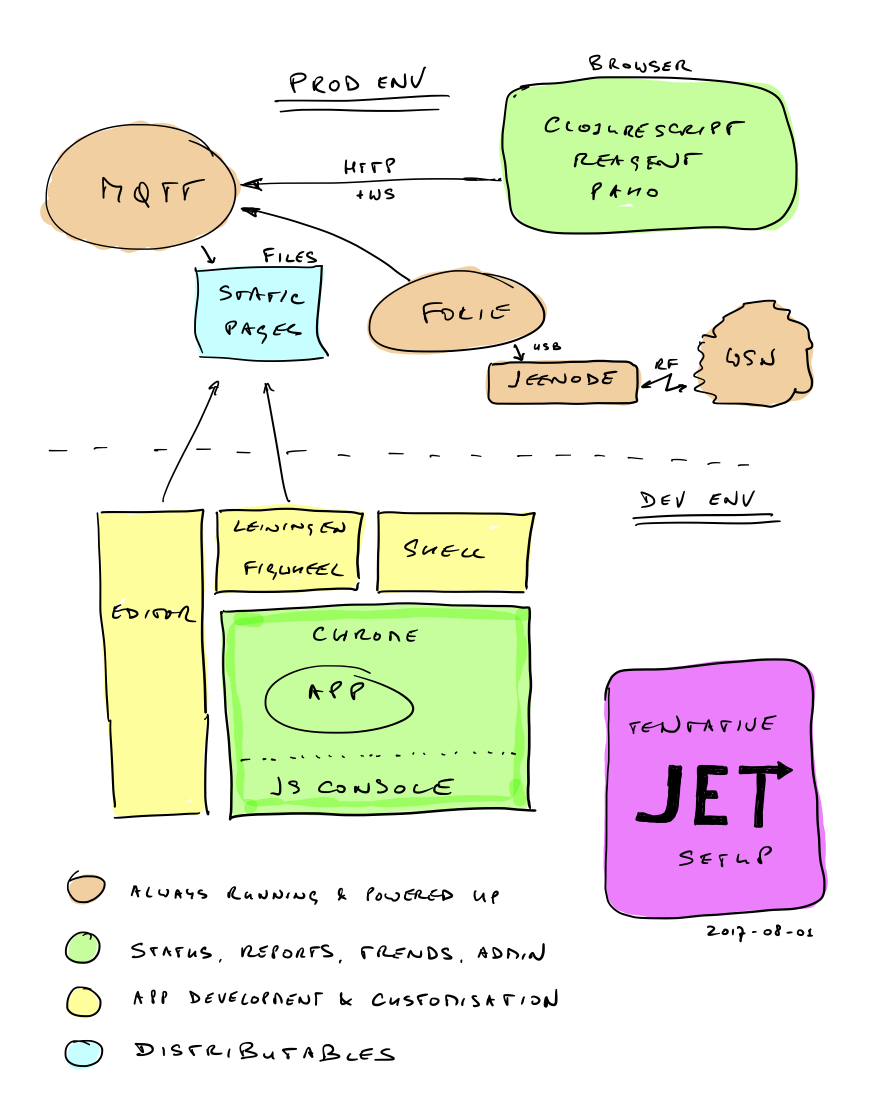 BROWSER
PROD ENV
CLOJURESCRIPT
REAGENT
PAHO
HTTP
+WS
MQTT
FILES
STATIC
PAGES
FOLIE
USB
JEENODE
RF
WSN
DEV ENV
LEININGEN
FIGWHEEL
SHELL
EDITOR
CHROME
APP
JS CONSOLE
TENTATIVE
JET
SETUP
2017-08-01
ALWAYS RUNNING & POWERED UP
STATUS, REPORTS, TRENDS, ADMIN
APP DEVELOPMENT & CUSTOMISATION
DISTRIBUTABLES